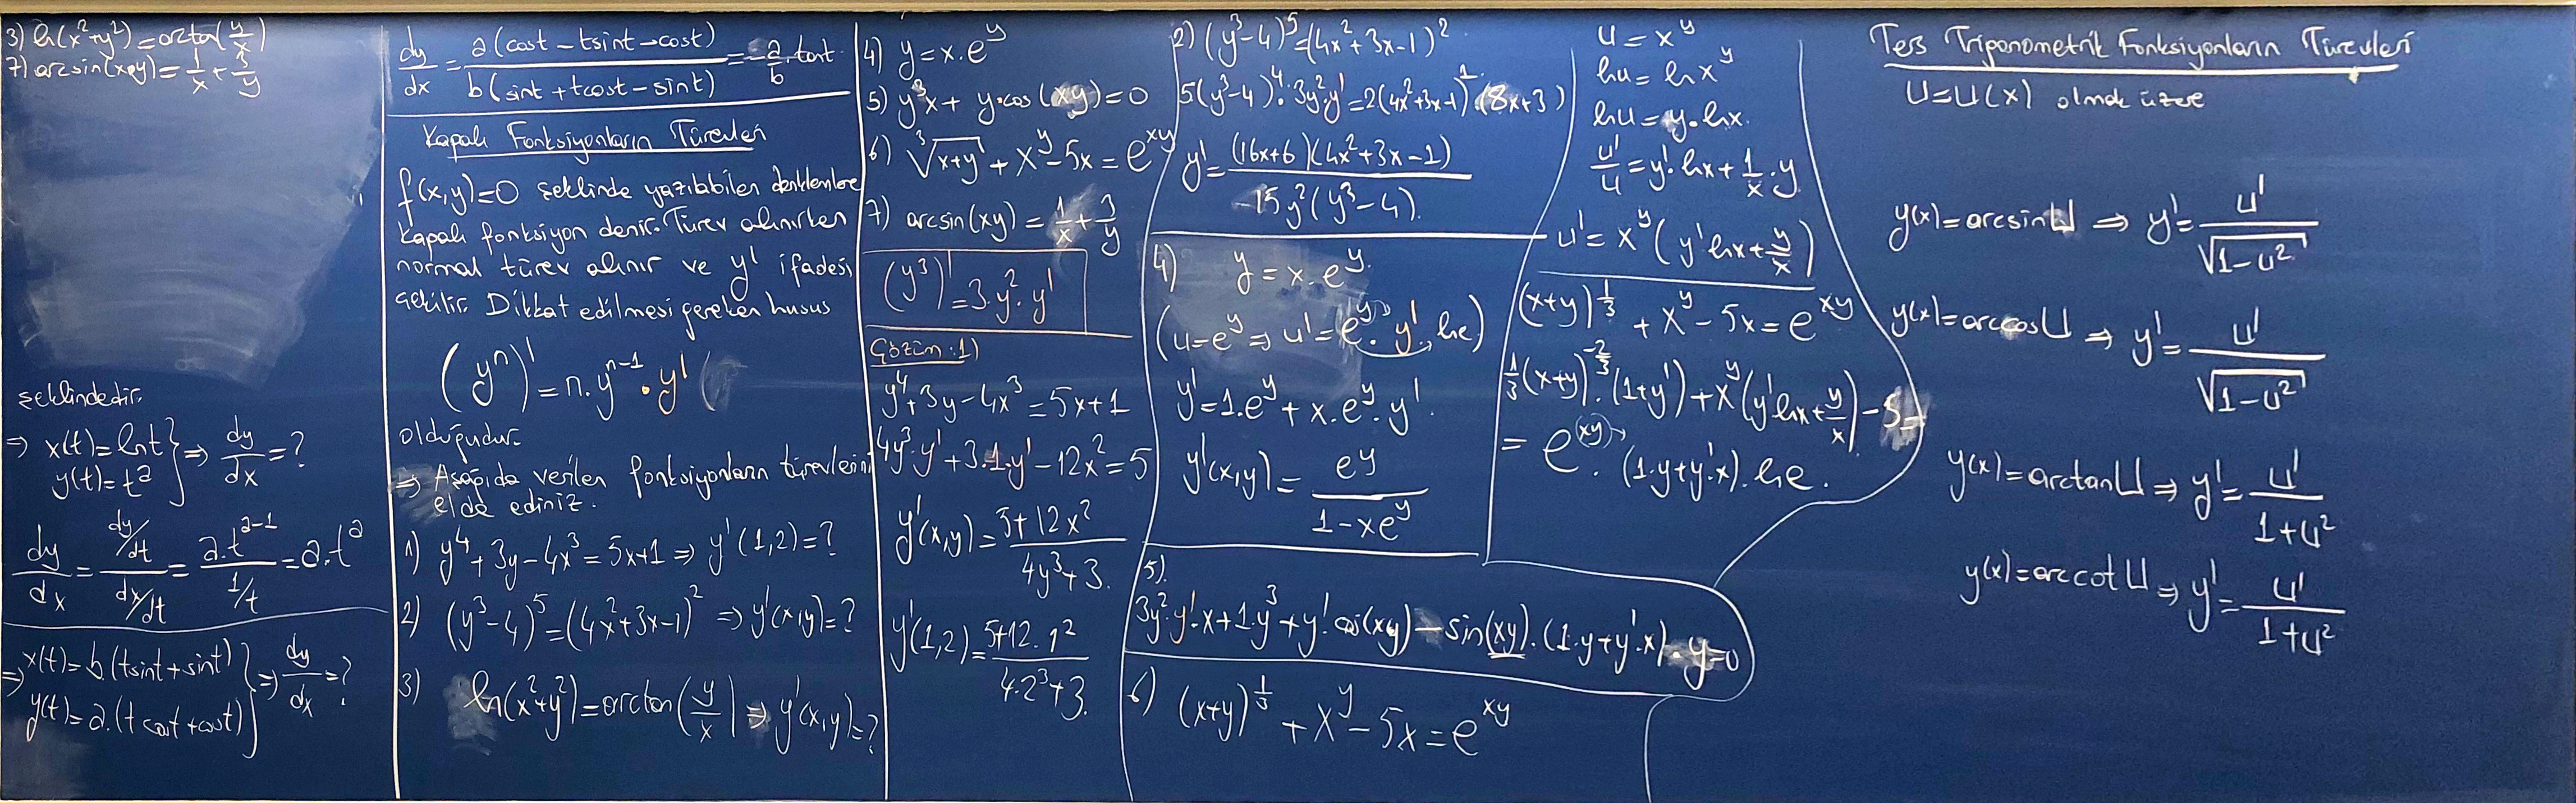 3) ln(x²+y²)=arctan(y/x)
7) arcsin(xy)=1/x+3/y
şeklindedir.
⇒ x(t)=lnt
y(t)=t^a } ⇒ dy/dx=?
dy/dx = (dy/dt)/(dx/dt) = (a.t^(a-1))/(1/t) = a.t^a
⇒ x(t)=b(tsint+sint)
y(t)=a.(tcost+cost) } ⇒ dy/dx=?
dy/dx = a(cost-tsint-cost)/b(sint+tcost-sint) = -a/b.tant
Kapalı Fonksiyonların Türevleri
f(x,y)=0 şeklinde yazılabilen denklemlere
kapalı fonksiyon denir. Türev alınırken
normal türev alınır ve y' ifadesi
çekilir. Dikkat edilmesi gereken husus
(yⁿ)'=n.y^(n-1).y'
olduğudur.
⇒ Aşağıda verilen fonksiyonların türevlerini
elde ediniz.
1) y⁴+3y-4x³=5x+1 ⇒ y'(1,2)=?
2) (y³-4)⁵=(4x²+3x-1)² ⇒ y'(x,y)=?
3) ln(x²+y²)=arctan(y/x) ⇒ y'(x,y)=?
4) y=x.e^y
5) y³x+y.cos(xy)=0
6) ∛(x+y)+x^y-5x=e^(xy)
7) arcsin(xy)=1/x+3/y
(y³)'=3.y².y'
Çözüm:1)
y⁴+3y-4x³=5x+1
4y³.y'+3.1.y'-12x²=5
y'(x,y)=(5+12x²)/(4y³+3)
y'(1,2)=(5+12.1²)/(4.2³+3)
2) (y³-4)⁵=(4x²+3x-1)²
5(y³-4)⁴.3y².y'=2(4x²+3x-1)¹.(8x+3)
y'=(16x+6)(4x²+3x-1)/15y²(y³-4)
4) y=x.e^y
(u=e^y ⇒ u'=e^y.y'.lne)
y'=1.e^y+x.e^y.y'
y'(x,y)=e^y/(1-xe^y)
5)
3y².y'.x+1.y³+y'.cos(xy)-sin(xy).(1.y+y'.x).y=0
6) (x+y)^(1/3)+x^y-5x=e^(xy)
u=x^y
lnu=lnx^y
lnu=y.lnx
u'/u=y'.lnx+1/x.y
u'=x^y(y'lnx+y/x)
(x+y)^(1/3)+x^y-5x=e^(xy)
1/3(x+y)^(-2/3).(1+y')+x^y(y'lnx+y/x)-5=
=e^(xy).(1.y+y'.x).lne.
Ters Trigonometrik Fonksiyonların Türevleri
U=U(x) olmak üzere
y(x)=arcsinU ⇒ y'=u'/√(1-u²)
y(x)=arccosU ⇒ y'=u'/√(1-u²)
y(x)=arctanU ⇒ y'=u'/(1+u²)
y(x)=arccotU ⇒ y'=u'/(1+u²)